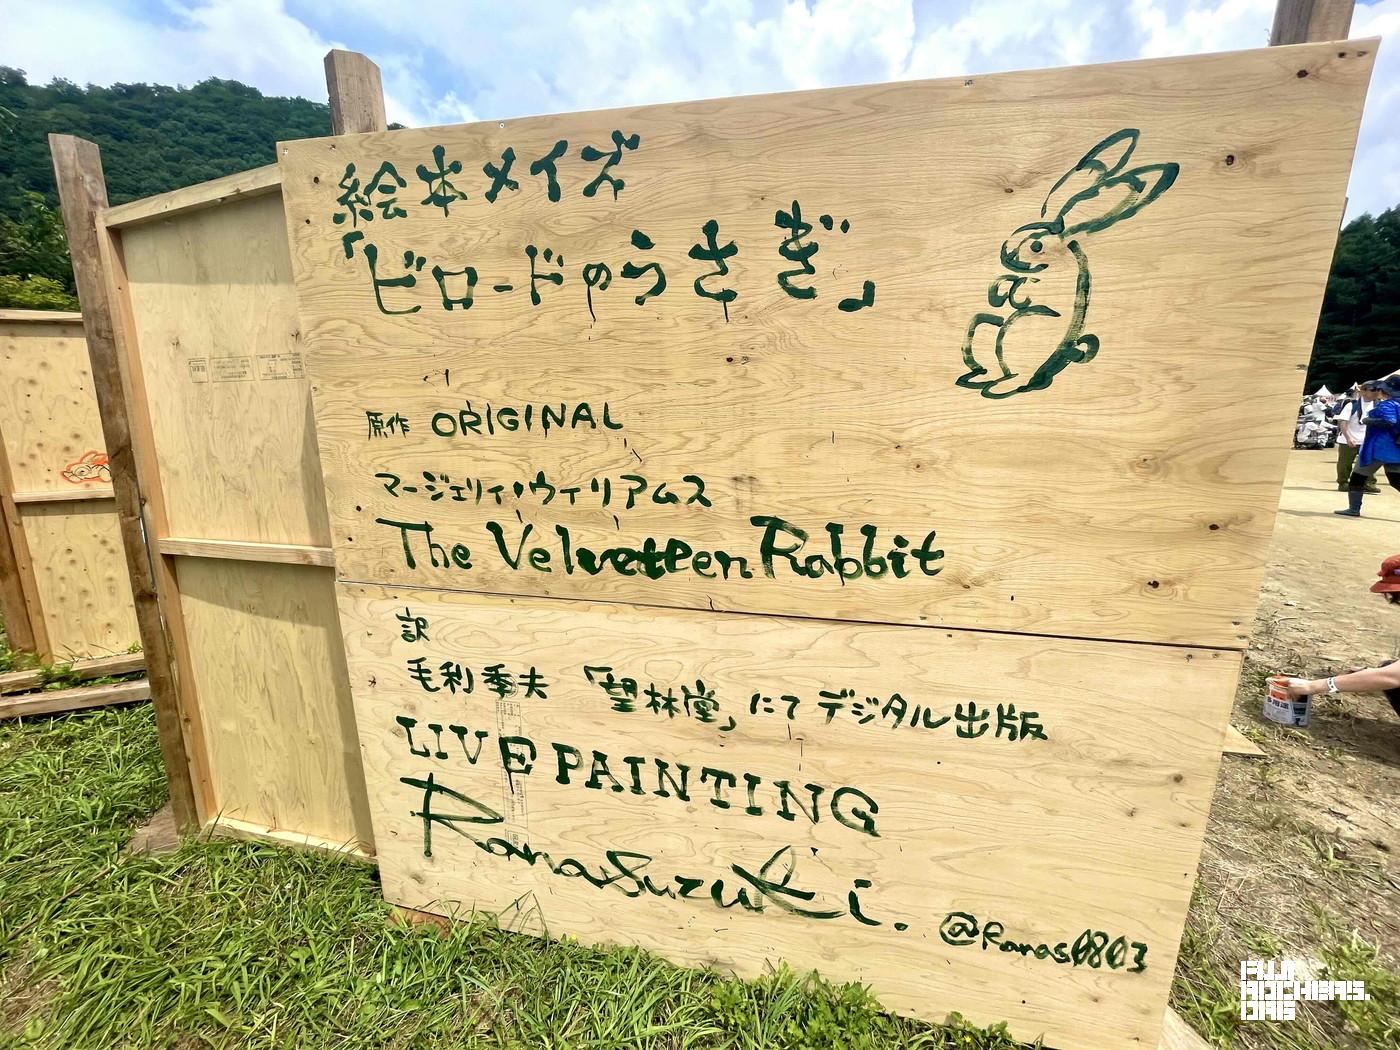 絵本メイズ
「ビロードのうさぎ」
原作 ORIGINAL
マージェリィ・ウィリアムス
The Velveteen Rabbit
訳
毛利孝夫 「望林堂」にてデジタル出版
LIVE PAINTING
Rana Suzuki.
@Ranas0803
FUJI
ROCKERS.
ORG